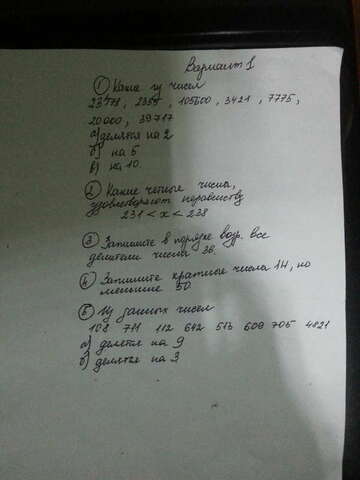 Вариант 1
① Какие из чисел
2355, 105600, 3421, 7775,
20000, 39717
а) делятся на 2
б) на 5
в) на 10.
② Какие четные числа,
удовлетворяют неравенству
231 < x < 238
③ Запишите в порядке возр. все
делители числа 36.
④ Запишите кратные числа 14, но
меньшие 50.
⑤ Из данных чисел
108 711 112 642 513 609 705 4821
а) делятся на 9
б) делятся на 3